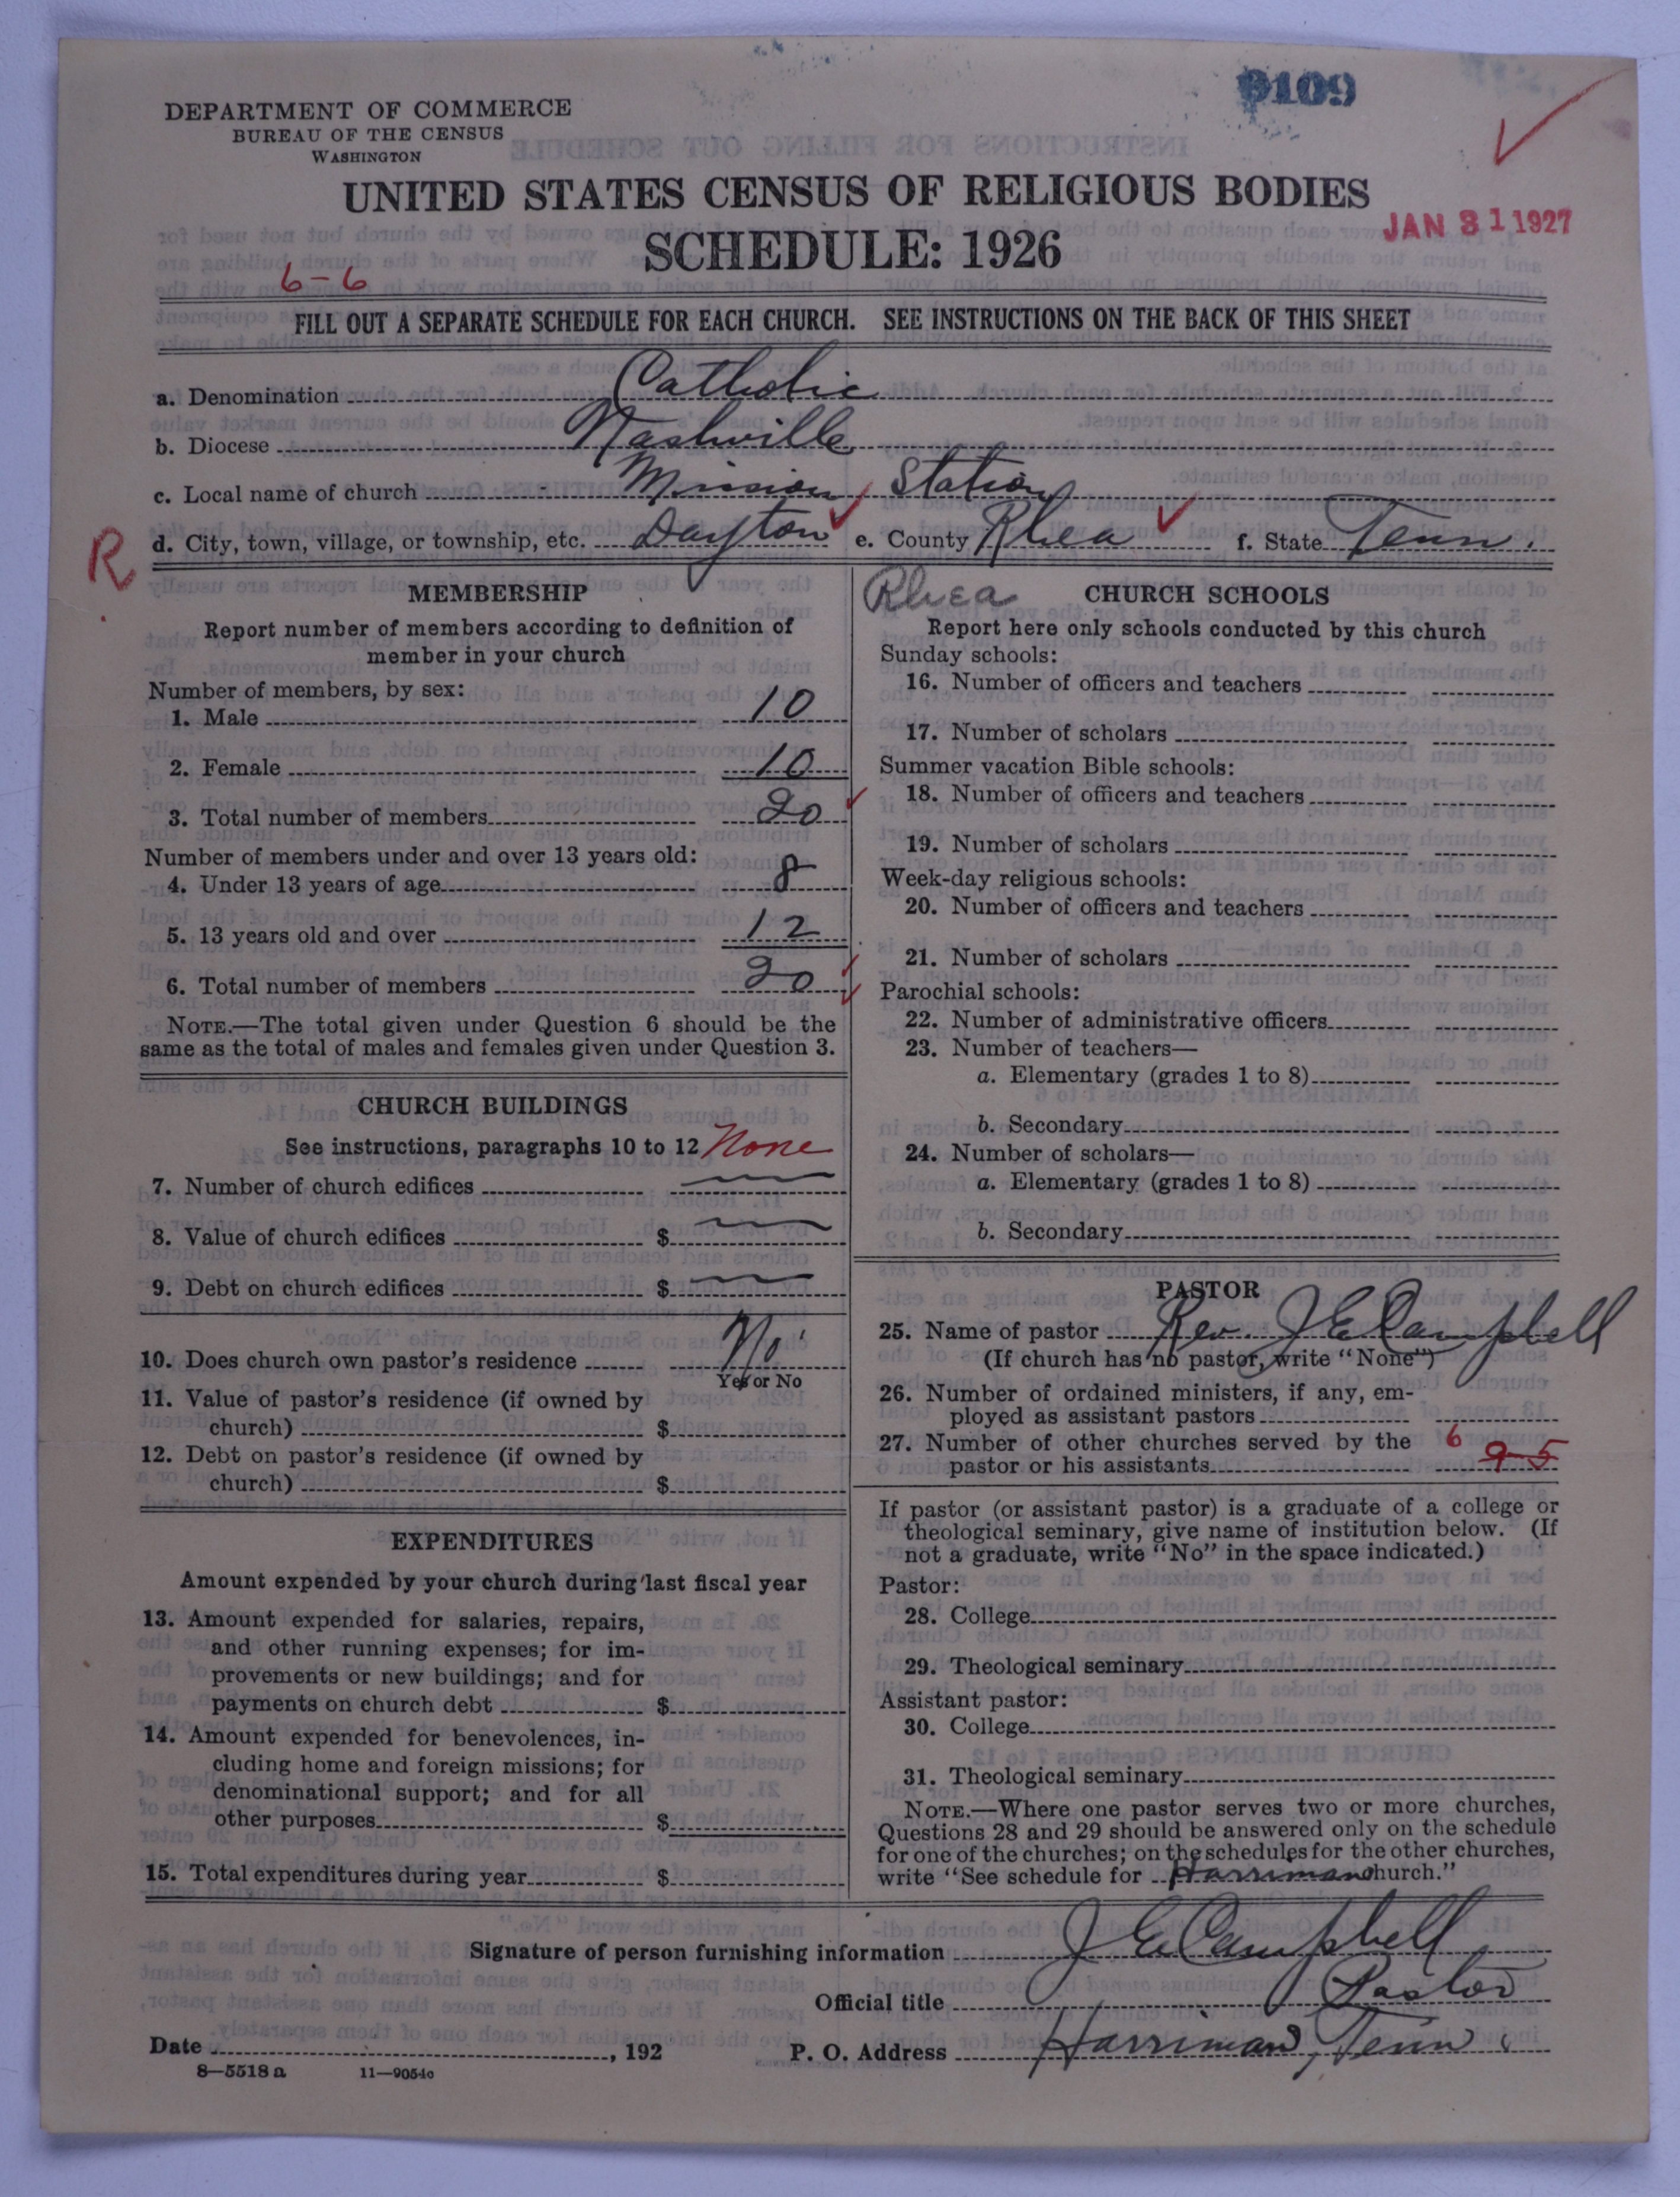 9109
DEPARTMENT OF COMMERCE
BUREAU OF THE CENSUS
WASHINGTON
UNITED STATES CENSUS OF RELIGIOUS BODIES
JAN 31 1927
SCHEDULE: 1926
6-6
FILL OUT A SEPARATE SCHEDULE FOR EACH CHURCH. SEE INSTRUCTIONS ON THE BACK OF THIS SHEET
a. Denomination Catholic
b. Diocese Nashville
c. Local name of church Mission Station
R d. City, town, village, or township, etc. Dayton e. County Rhea f. State Tenn.
MEMBERSHIP
Report number of members according to definition of
member in your church
Number of members, by sex:
1. Male 10
2. Female 10
3. Total number of members 20
Number of members under and over 13 years old:
4. Under 13 years of age 8
5. 13 years old and over 12
6. Total number of members 20
NOTE.—The total given under Question 6 should be the
same as the total of males and females given under Question 3.
CHURCH BUILDINGS
See instructions, paragraphs 10 to 12 None
7. Number of church edifices —
8. Value of church edifices $ —
9. Debt on church edifices $ —
10. Does church own pastor's residence No
Yes or No
11. Value of pastor's residence (if owned by
church) $
12. Debt on pastor's residence (if owned by
church) $
EXPENDITURES
Amount expended by your church during last fiscal year
13. Amount expended for salaries, repairs,
and other running expenses; for im-
provements or new buildings; and for
payments on church debt $
14. Amount expended for benevolences, in-
cluding home and foreign missions; for
denominational support; and for all
other purposes $
15. Total expenditures during year $
Rhea CHURCH SCHOOLS
Report here only schools conducted by this church
Sunday schools:
16. Number of officers and teachers
17. Number of scholars
Summer vacation Bible schools:
18. Number of officers and teachers
19. Number of scholars
Week-day religious schools:
20. Number of officers and teachers
21. Number of scholars
Parochial schools:
22. Number of administrative officers
23. Number of teachers—
a. Elementary (grades 1 to 8)
b. Secondary
24. Number of scholars—
a. Elementary (grades 1 to 8)
b. Secondary
PASTOR
25. Name of pastor Rev. J E Campbell
(If church has no pastor, write "None")
26. Number of ordained ministers, if any, em-
ployed as assistant pastors
27. Number of other churches served by the 6
pastor or his assistants 9 5
If pastor (or assistant pastor) is a graduate of a college or
theological seminary, give name of institution below. (If
not a graduate, write "No" in the space indicated.)
Pastor:
28. College
29. Theological seminary
Assistant pastor:
30. College
31. Theological seminary
NOTE.—Where one pastor serves two or more churches,
Questions 28 and 29 should be answered only on the schedule
for one of the churches; on the schedules for the other churches,
write "See schedule for Harriman church."
Signature of person furnishing information J E Campbell
Official title Pastor
Date , 192 P. O. Address Harriman, Tenn.
8—5518 a 11—9054c